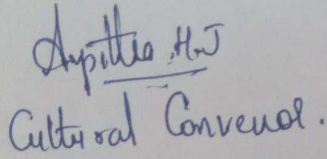 Arpitha .H.J
Cultural Convenor.